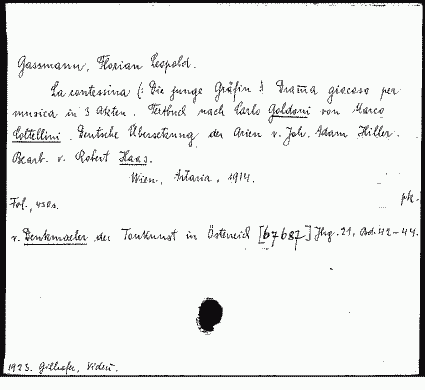 Gassmann, Florian Leopold.
La contessina (: Die junge Gräfin :) Drama giocoso per
musica in 3 Akten. Textbuch nach Carlo Goldoni von Marco
Coltellini. Deutsche Übersetzung der Arien v. Joh. Adam Hiller.
Bearb. v. Robert Haas.
Wien, Artaria, 1914.
pk.
Fol.,
v. Denkmaeler der Tonkunst in Österreich [67687] Jhg. 21, Bd. 42-44.
1923. Gilhofer, Videň.